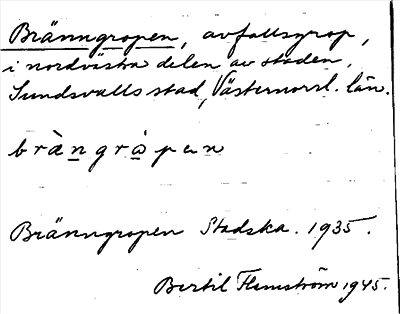 Bränngropen, avfallsgrop,
i nordvästra delen av staden,
Sundsvalls stad, Västernorrl. län.
bràngrò̀pen
Bränngropen Stadska. 1935.
Bertil Flemström 1945.